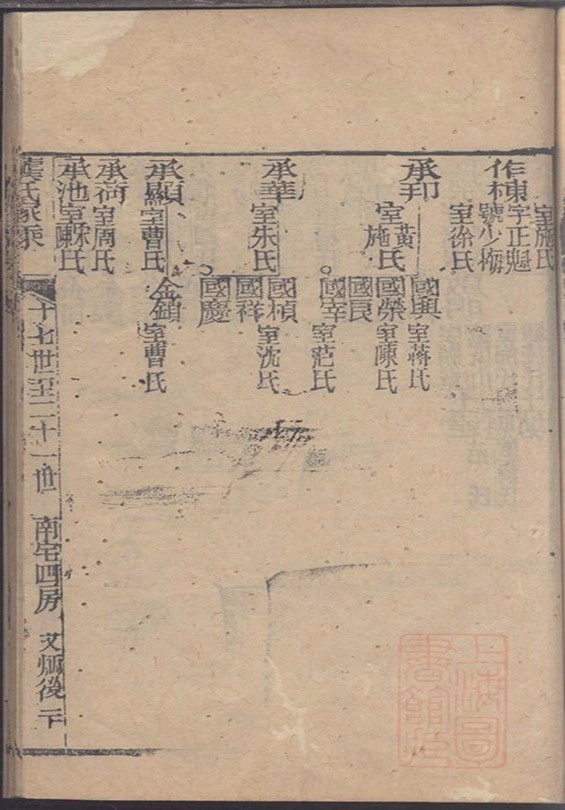 室施氏
作棟字正魁
號少梅
室徐氏
承邦室黃氏
室施氏
國興室蔣氏
國榮室陳氏
國良
國宰室范氏
承華室朱氏
國楨室沈氏
國祥
國慶
承顯室曹氏
金鎖室曹氏
承荷室周氏
承池室蘇氏
龔氏家乘
十七世至二十一世
南宅四房
又炳後
二十
上海圖書館臧